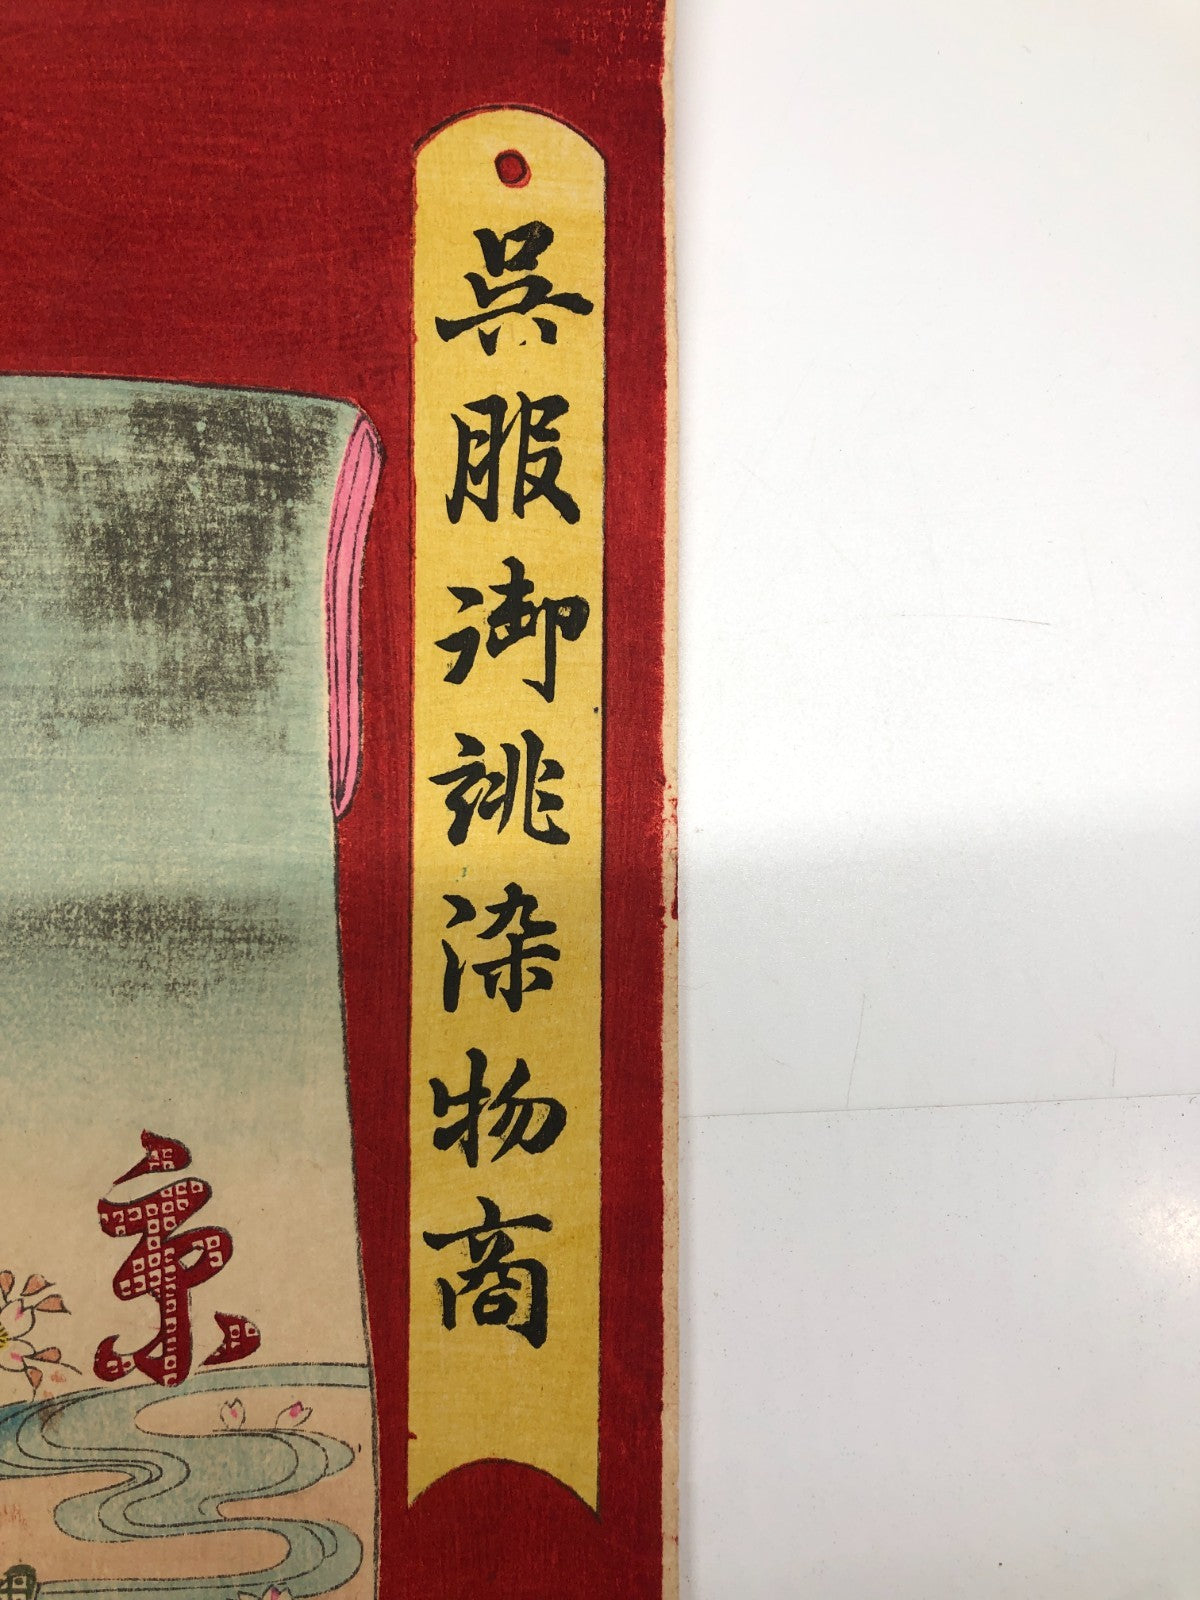 呉服御誂染物商
京